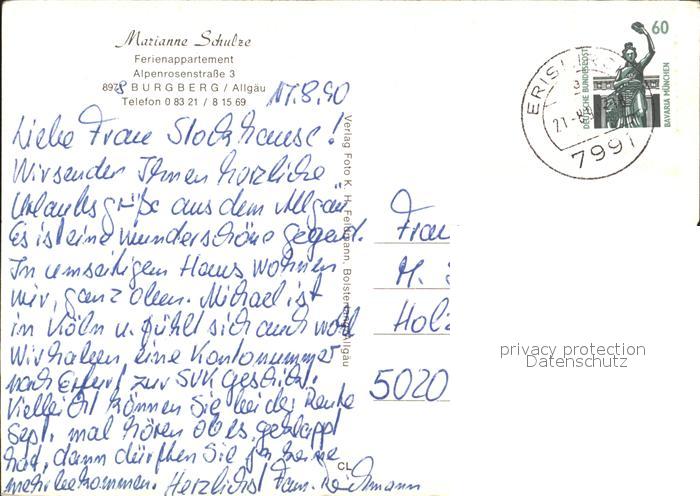 Marianne Schulze
Ferienappartement
Alpenrosenstraße 3
8978 BURGBERG / Allgäu
Telefon 0 83 21 / 8 15 69
17.8.90
Liebe Frau Stockhause!
Wir senden Ihnen herzliche
Urlaubsgrüße aus dem Allgäu.
Es ist eine wunderschöne Gegend.
In umseitigem Haus wohnen
wir, ganz oben. Michael ist
in Köln u. fühlt sich auch wohl
Wir haben, eine Kontonummer
nach Erfurt zur SVK geschickt.
Vielleicht können Sie bei der Rente
Sept. mal hören ob es geklappt
hat, dann dürften Sie ja keine
mehr bekommen. Herzlichst Fam.
Verlag Foto K. H. Feldmann, Bolsterlang/Allgäu
CL
Frau
M.
Hol
5020
60
DEUTSCHE BUNDESPOST
BAVARIA MÜNCHEN
ERIS
21.-8.
7991
privacy protection
Datenschutz